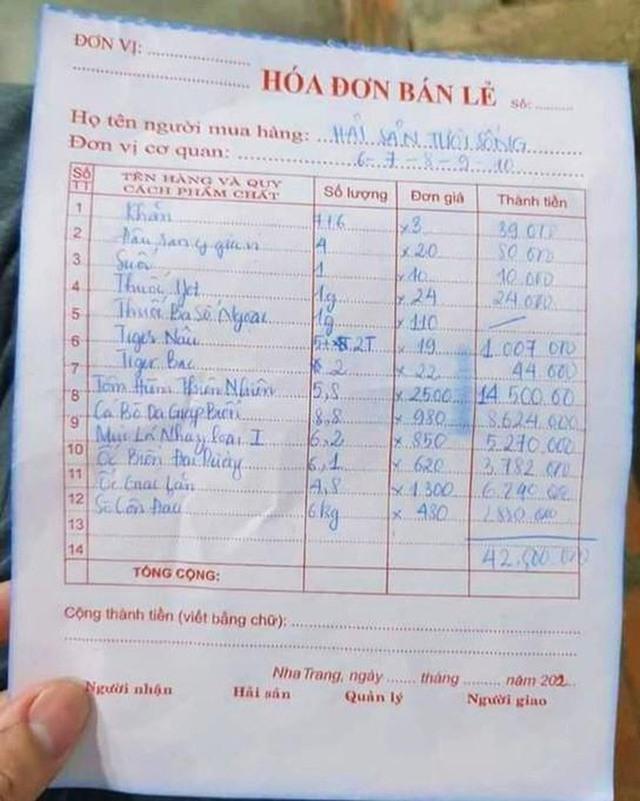 ĐƠN VỊ: ....................
....................
HÓA ĐƠN BÁN LẺ Số: ........
Họ tên người mua hàng: HẢI SẢN TƯƠI SỐNG
Đơn vị cơ quan: 6-7-8-9-10
Số TT TÊN HÀNG VÀ QUY CÁCH PHẨM CHẤT Số lượng Đơn giá Thành tiền
1 Khăn ×3 39.000
2 4 ×20 80 000
3 Suối 1 ×10 10.000
4 Thuốc 1g ×24 24.000
5 Thuốc Ba Số Ngoại 1g ×110
6 Tiger Nâu 2T ×19 1.007 000
7 Tiger Bạc 2 ×22 44 000
8 Tôm Hùm Thiên Nhiên 5,8 ×2500 14 500.00
9 Cá Bò Da Giáp Biển 8,8 ×980 8.624.000
Mực Lá Nháy Loại I 6,2 ×850 5.270 000
10 Ốc Biên Đại Dương 6,1 ×620 3.782 000
11 Ốc Gai Lớn 4,8 ×1300 6.240 000
12 Sò Côn Đảo 6kg ×480 2880 000
13
14 42.500 000
TỔNG CỘNG:
Cộng thành tiền (viết bằng chữ): ....................
Nha Trang, ngày ...... tháng ........ năm 202...
Người nhận Hải sản Quản lý Người giao